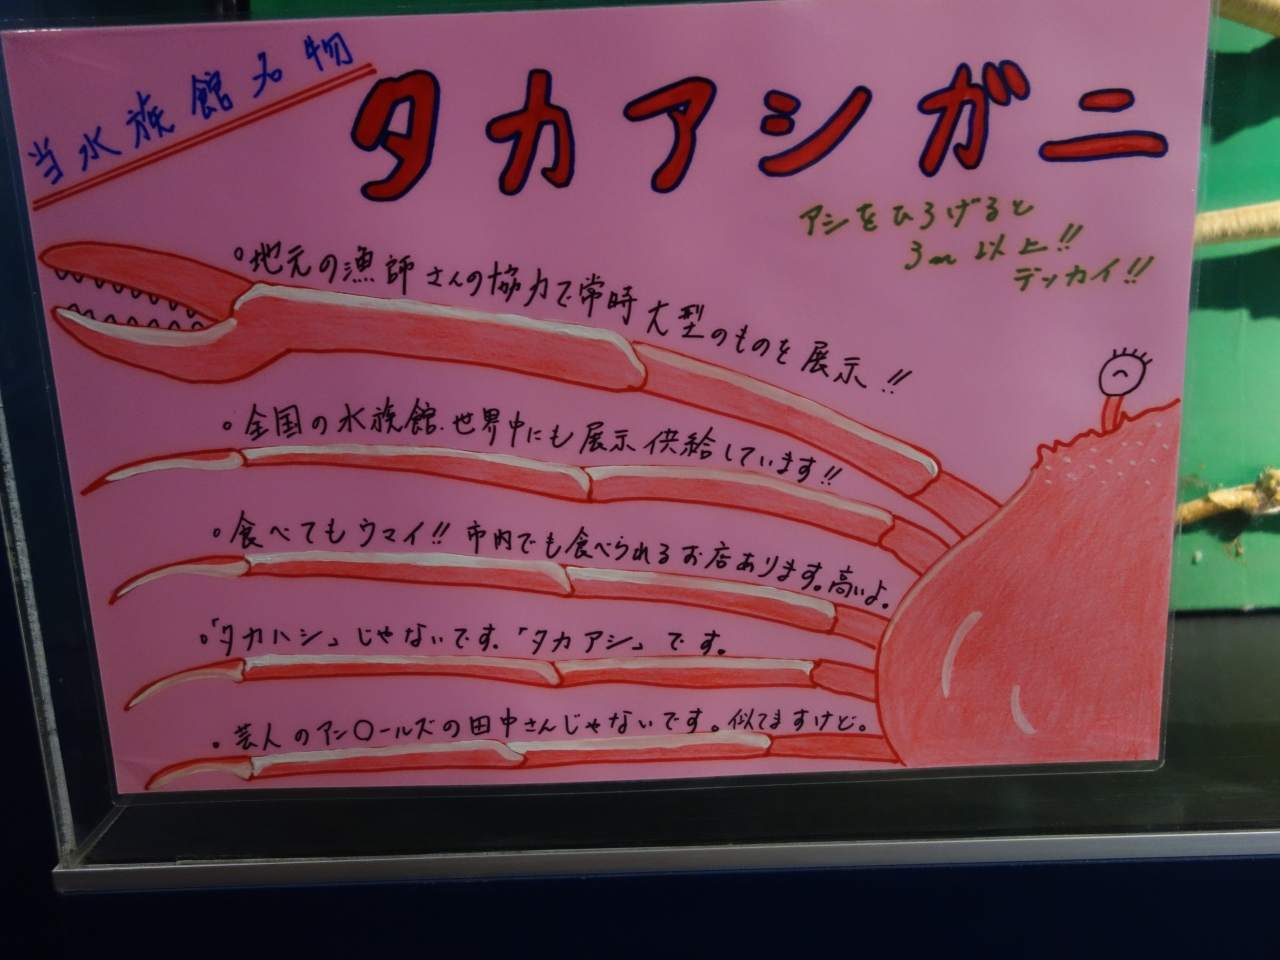 当水族館名物
タカアシガニ
アシをひろげると
3m以上!!
デッカイ!!
○地元の漁師さんの協力で常時大型のものを展示!!
○全国の水族館、世界中にも展示供給しています!!
○食べてもウマイ!! 市内でも食べられるお店あります。高いよ。
○「タカハシ」じゃないです。「タカアシ」です。
○芸人のアン○ールズの田中さんじゃないです。似てますけど。